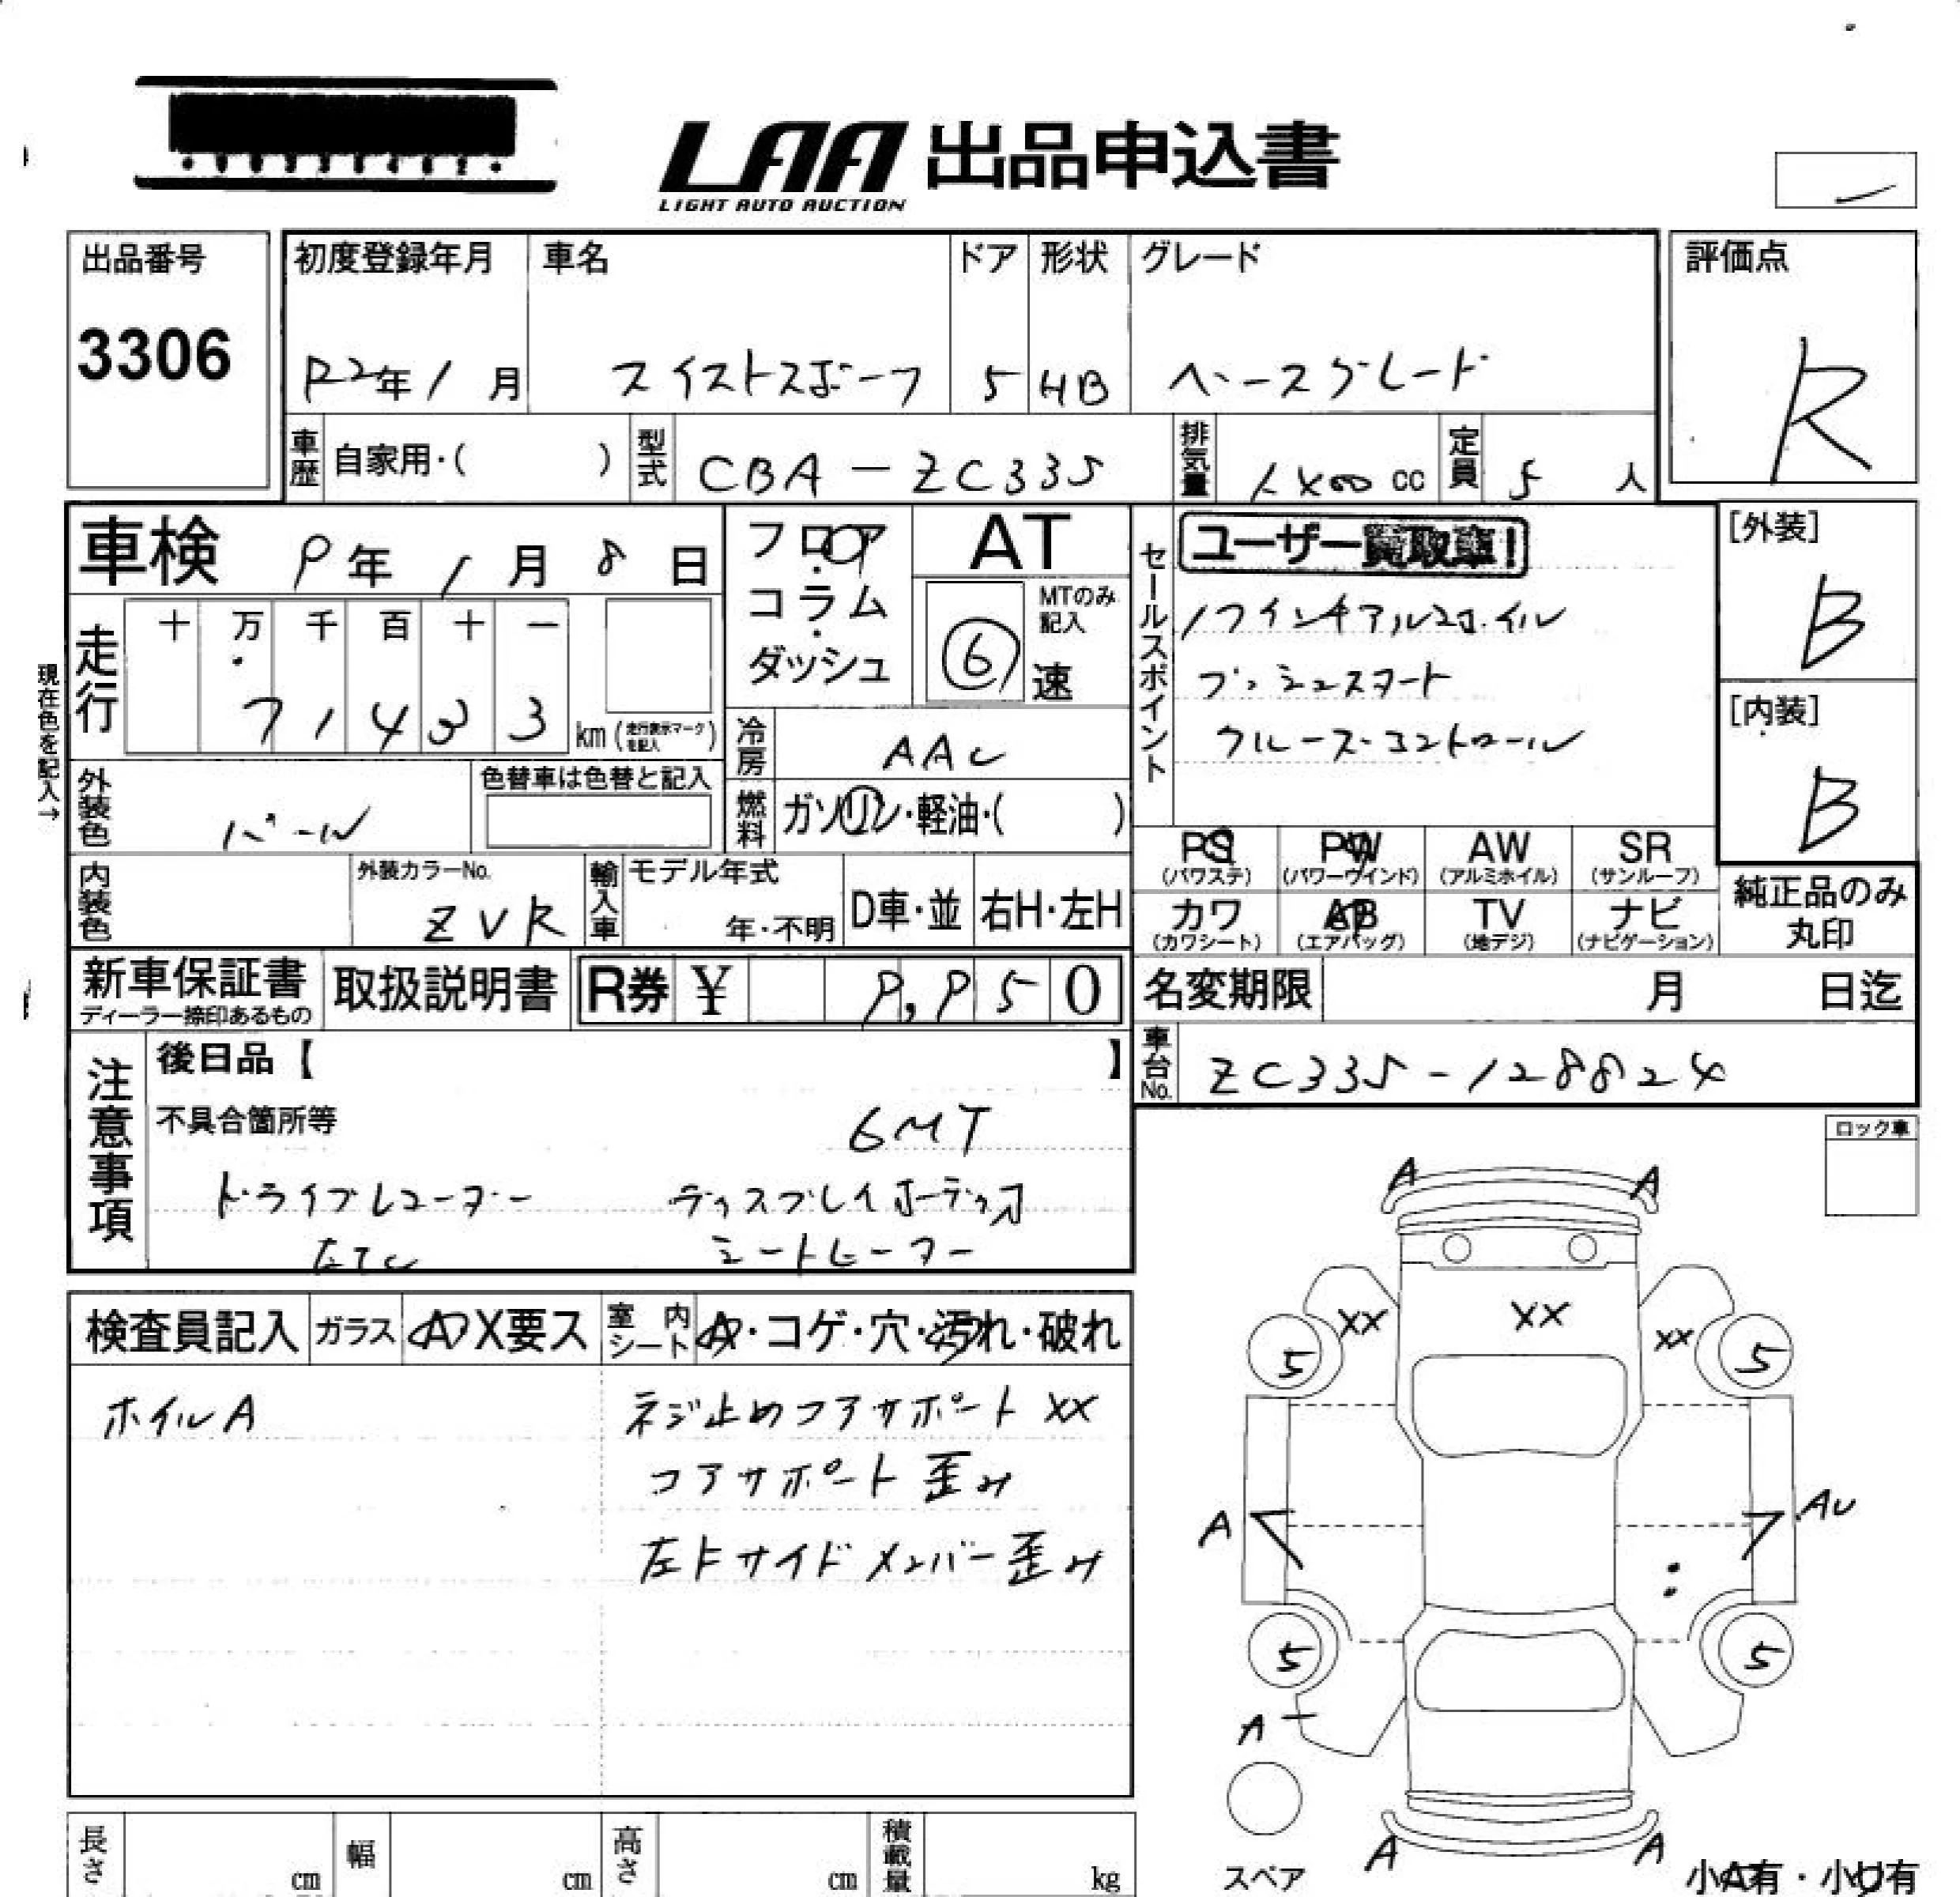 LAA 出品申込書
LIGHT AUTO AUCTION
出品番号
3306
初度登録年月
R2年1月
車名
スイストスポーツ
ドア
5
形状
HB
グレード
ベースグレード
評価点
R
車歴 自家用・( )
型式 CBA-ZC33S
排気量 1400 cc
定員 5 人
車検 9年1月8日
フロア・コラム・ダッシュ
AT
MTのみ記入
⑥速
セールスポイント
ユーザー買取車!
17インチアルミホイル
プッシュスタート
クルーズ・コントロール
[外装]
B
[内装]
B
現在色を記入→
走行
十 万 千 百 十 一
71433
km(走行表示マークを記入)
冷房 AAC
外装色 パール
色替車は色替と記入
燃料 ガソリン・軽油・( )
内装色
外装カラーNo.
ZVR
輸入車
モデル年式
年・不明
D車・並
右H・左H
PS (パワステ)
PW (パワーウインド)
AW (アルミホイル)
SR (サンルーフ)
カワ (カワシート)
AB (エアバッグ)
TV (地デジ)
ナビ (ナビゲーション)
純正品のみ丸印
新車保証書
ディーラー捺印あるもの
取扱説明書
R券 ¥ 9,950
名変期限 月 日迄
車台No. ZC33S-128824
注意事項
後日品【 】
不具合箇所等
6MT
ドライブレコーダー ディスプレイオーディオ
ETC シートヒーター
ロック車
検査員記入
ガラス A X要ス
室内シート A・コゲ・穴・汚れ・破れ
ホイルA
ネジ止めコアサポート XX
コアサポート歪み
左Fサイドメンバー歪み
A A
XX XX XX
5 5
A AU
5 5
A
スペア
A A
小A有・小U有
長さ cm
幅 cm
高さ cm
積載量 kg